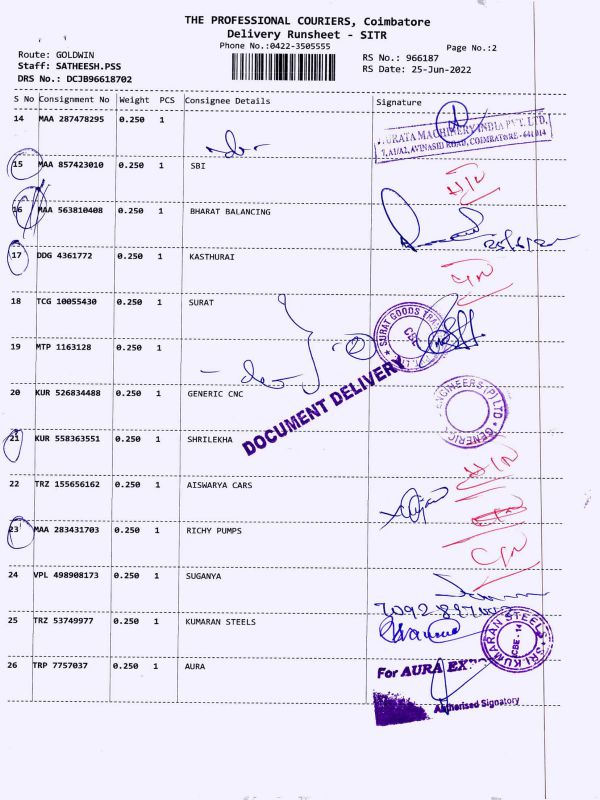 THE PROFESSIONAL COURIERS, Coimbatore
Delivery Runsheet - SITR
Phone No.:0422-3505555
Page No.:2
Route: GOLDWIN
Staff: SATHEESH.PSS
DRS No.: DCJB96618702
RS No.: 966187
RS Date: 25-Jun-2022
S No Consignment No Weight PCS Consignee Details Signature
14 MAA 287478295 0.250 1
MURATA MACHINERY INDIA PVT. LTD.
7,A1/A2, AVINASHI ROAD, COIMBATORE - 641 014
15 MAA 857423010 0.250 1 SBI
16 MAA 563810408 0.250 1 BHARAT BALANCING
25/6/22
17 DDG 4361772 0.250 1 KASTHURAI
18 TCG 10055430 0.250 1 SURAT
SURAT GOODS TRA
CBE
19 MTP 1163128 0.250 1
DOCUMENT DELIVERY
20 KUR 526834488 0.250 1 GENERIC CNC
GENERIC ENGINEERS (P) LTD
21 KUR 558363551 0.250 1 SHRILEKHA
22 TRZ 155656162 0.250 1 AISWARYA CARS
23 MAA 283431703 0.250 1 RICHY PUMPS
24 VPL 498908173 0.250 1 SUGANYA
25 TRZ 53749977 0.250 1 KUMARAN STEELS
SRI KUMARAN STEELS
CBE - 14
26 TRP 7757037 0.250 1 AURA
For AURA
Authorised Signatory